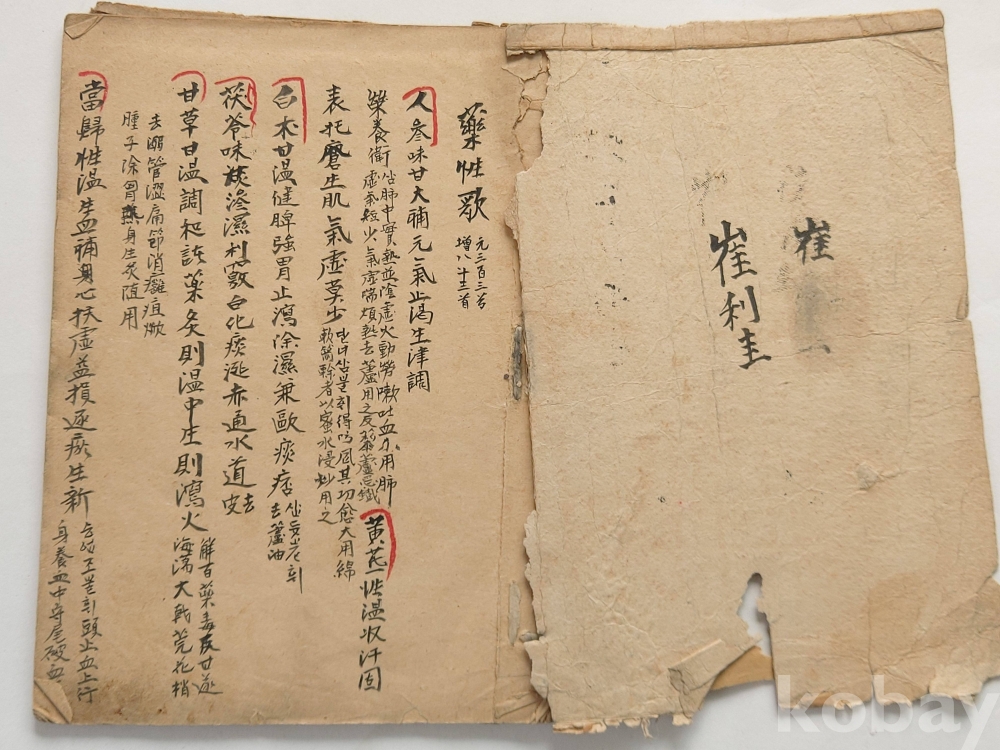 崔
崔利圭
藥性歌
元三百三首
增八十三首
人參味甘大補元氣止渴生津調
榮養衛
肺中實熱並陰虛火動勞嗽吐血勿用肺
虛氣短少氣虛喘煩熱去蘆用之反藜蘆忌鐵
黃芪性溫收汗固
表托瘡生肌氣虛莫少
得防風其功愈大用綿
軟箭幹者以蜜水浸炒用之
白朮甘溫健脾強胃止瀉除濕兼歐痰痞
去蘆油
茯苓味淡滲濕利竅白化痰涎赤通水道
去皮
甘草甘溫調和諸藥灸則溫中生則瀉火
解百藥毒反甘遂
海藻大戟芫花梢
去溺管澀痛節消癰疽焮
腫子除胃熱身生炙隨用
當歸性溫生血補心扶虛益損逐瘀生新
頭止血上行
身養血中守尾破血
kobay